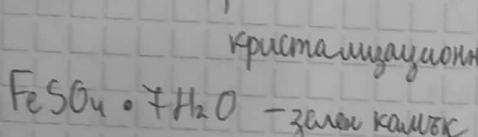 кристализационн
FeSO₄ • 7H₂O – зелен камък